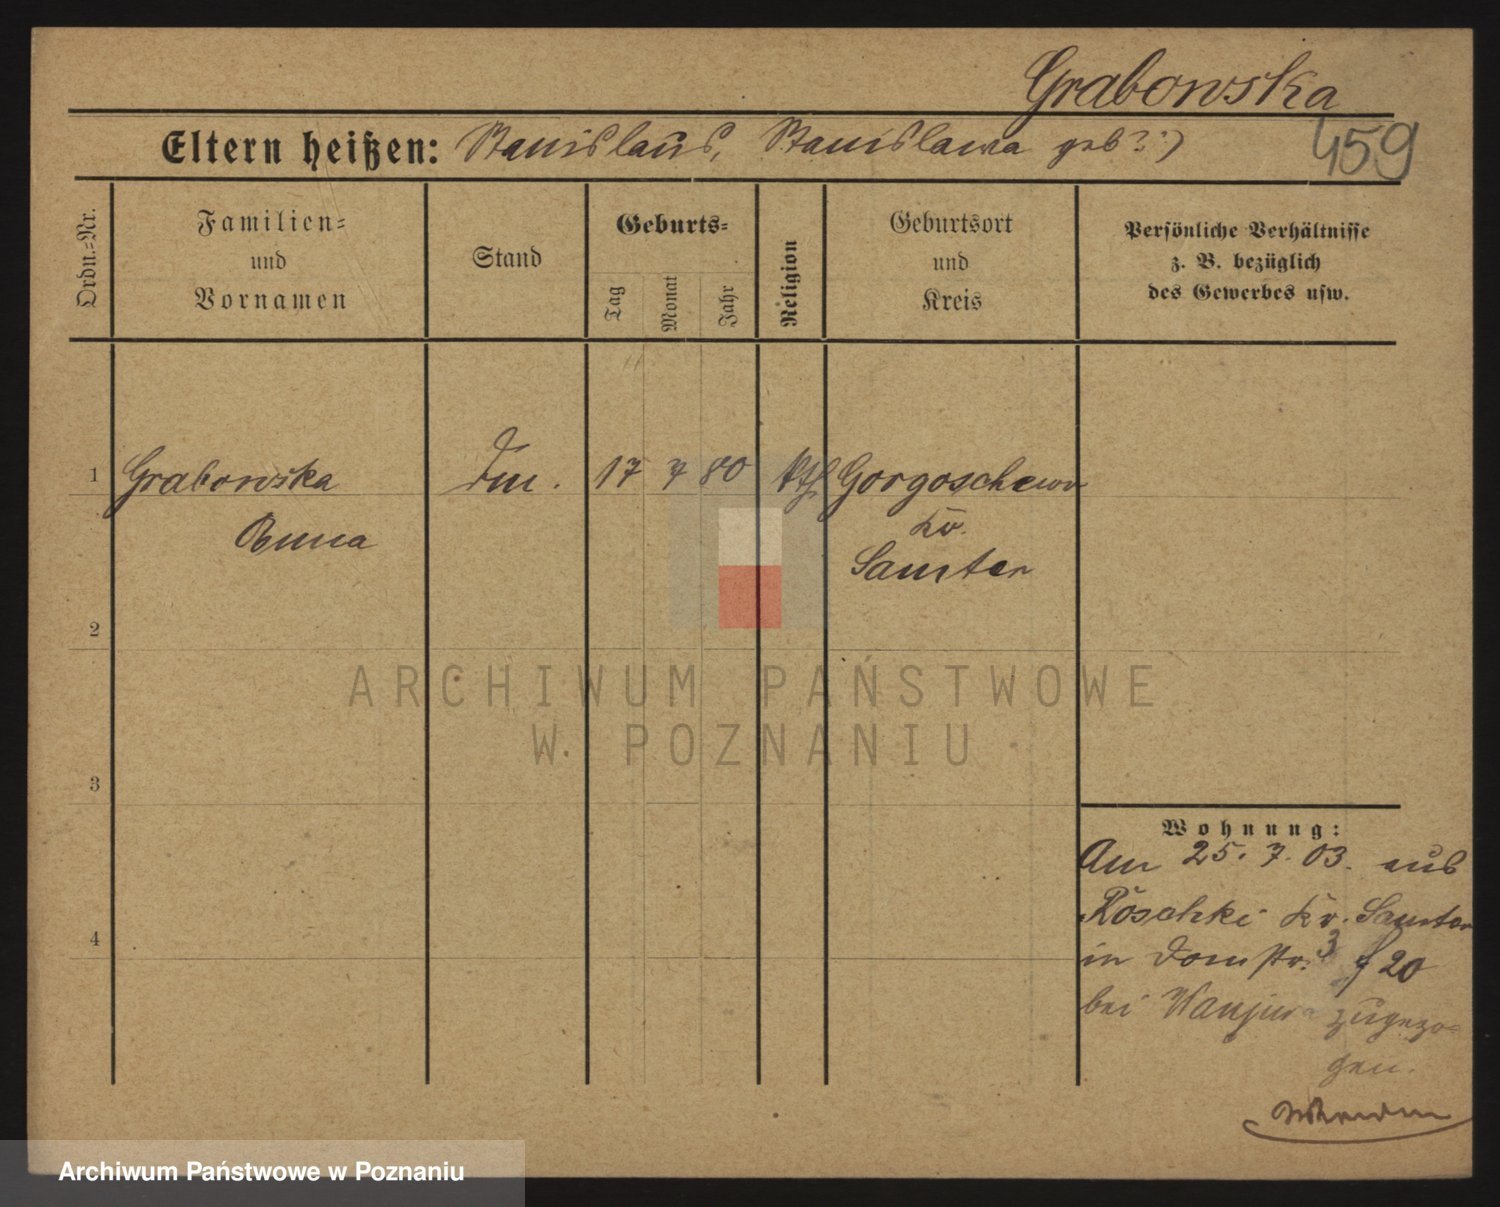 Grabowska
Eltern heißen: Stanislaus, Stanislawa geb ?)
459
Ordn.=Nr.
Familien=
und
Vornamen
Stand
Geburts=
Tag
Monat
Jahr
Religion
Geburtsort
und
Kreis
Persönliche Verhältnisse
z. B. bezüglich
des Gewerbes usw.
1 Grabowska 17 7 80 kth Gorgoschewo
Anna
Kr.
Samter
2
3
4
Wohnung:
Am 25. 7. 03. aus
Kr. Samter
in Domstr. 3
bei zugezo=
gen.
ARCHIWUM PAŃSTWOWE
W POZNANIU
Archiwum Państwowe w Poznaniu